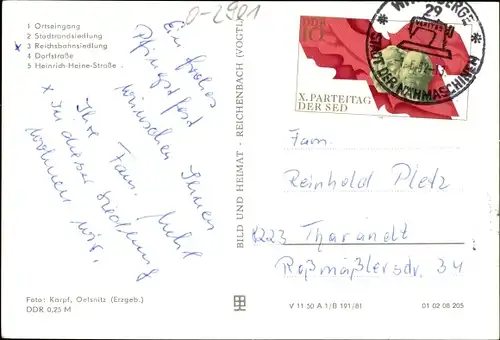 D-2901
1 Ortseingang
2 Stadtrandsiedlung
x 3 Reichsbahnsiedlung
4 Dorfstraße
5 Heinrich-Heine-Straße
Ein frohes
Pfingstfest
wünschen Ihnen
Ihre Fam.
x In dieser Siedlung
wohnen wir.
Foto: Karpf, Oelsnitz (Erzgeb.)
DDR 0,25 M
BILD UND HEIMAT · REICHENBACH (VOGTL)
DDR
10
X. PARTEITAG
DER SED
29
VERITAS
STADT DER NÄHMASCHINEN
Fam.
Reinhold Pletz
8223 Tharandt
Roßmäßlerstr. 34
V 11 50 A 1/B 191/81
01 02 08 205